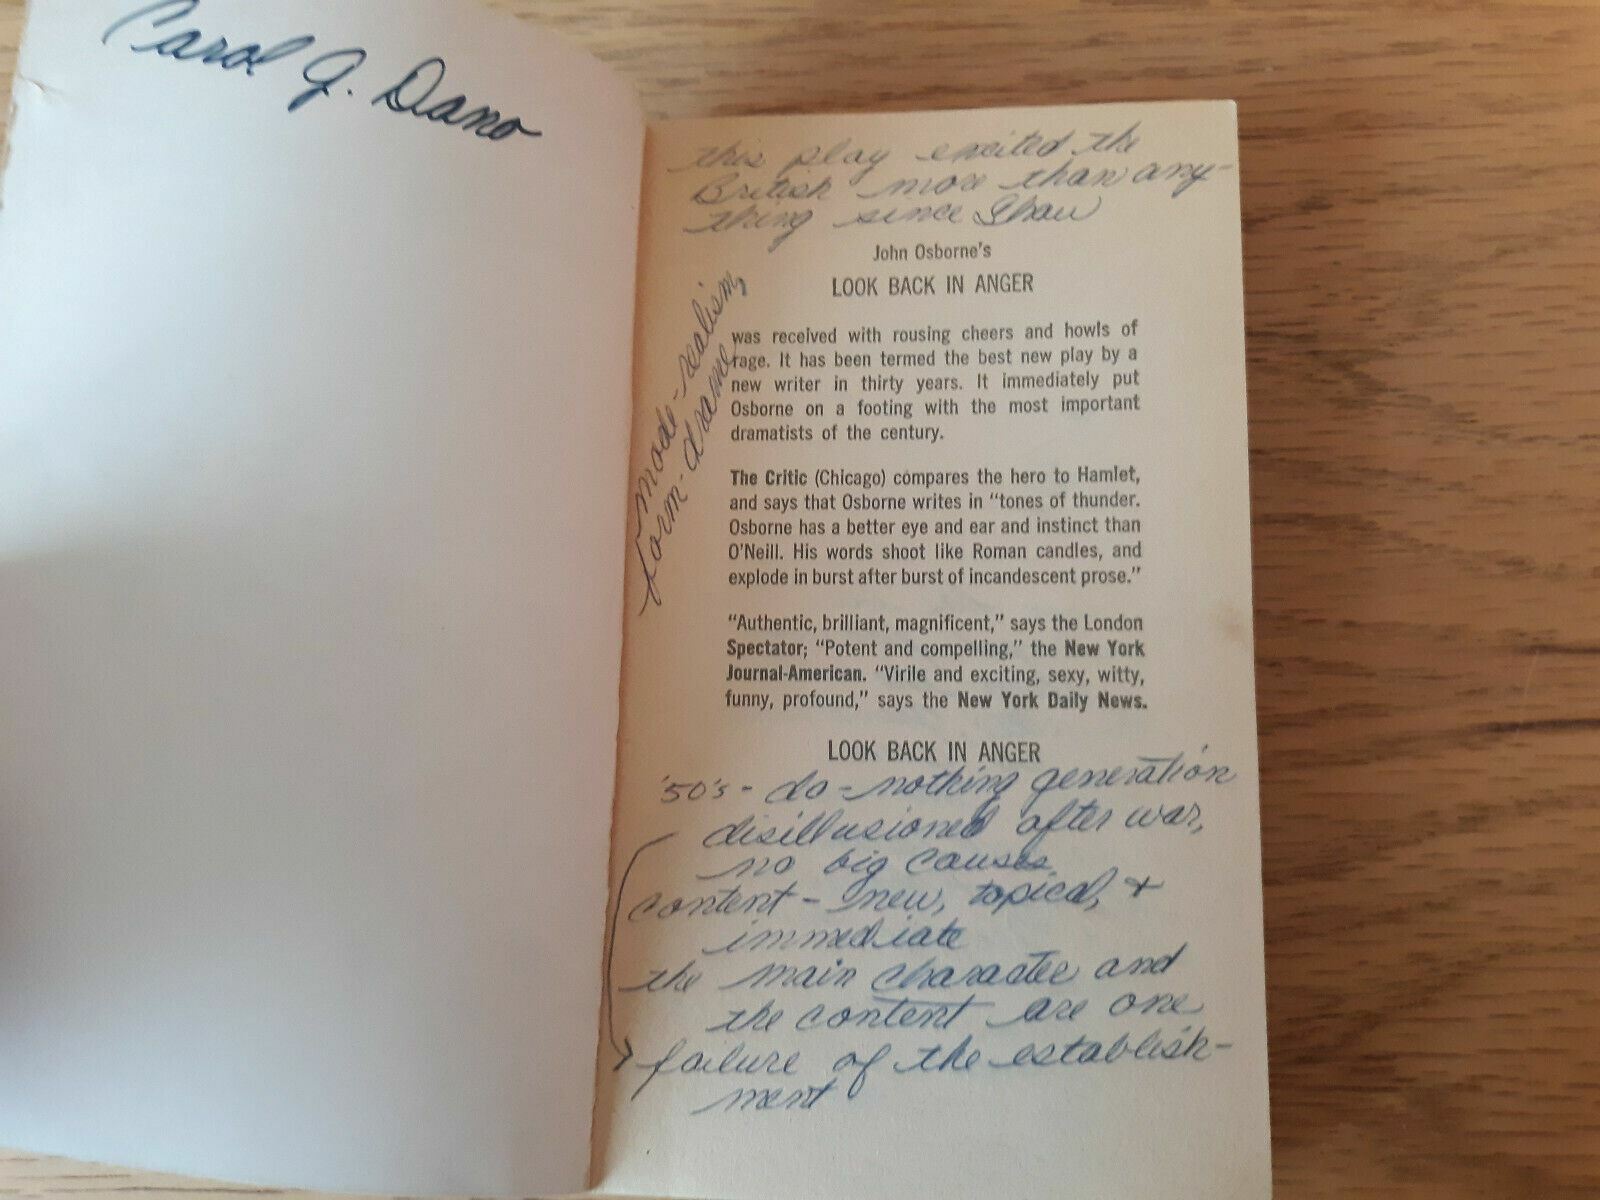 Carol G. Dano
this play excited the
British more than any-
thing since Shaw
John Osborne's
LOOK BACK IN ANGER
mode - realism,
form - drama
was received with rousing cheers and howls of
rage. It has been termed the best new play by a
new writer in thirty years. It immediately put
Osborne on a footing with the most important
dramatists of the century.
The Critic (Chicago) compares the hero to Hamlet,
and says that Osborne writes in "tones of thunder.
Osborne has a better eye and ear and instinct than
O'Neill. His words shoot like Roman candles, and
explode in burst after burst of incandescent prose."
"Authentic, brilliant, magnificent," says the London
Spectator; "Potent and compelling," the New York
Journal-American. "Virile and exciting, sexy, witty,
funny, profound," says the New York Daily News.
LOOK BACK IN ANGER
'50's - do-nothing generation
disillusioned after war,
no big causes
content - new, topical, +
immediate
the main character and
the content are one
failure of the establish-
ment